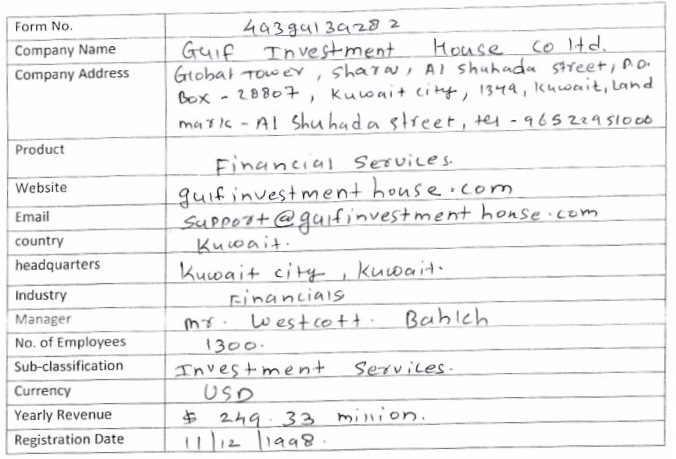 Form No. 49394139282
Company Name Gulf Investment House Co ltd.
Company Address Global Tower, Sharq, Al Shuhada street, P.O.
Box - 28807, Kuwait city, 1349, Kuwait, Land
mark - Al Shuhada street, tel - 96522951000
Product Financial Services.
Website gulfinvestmenthouse.com
Email support@gulfinvestmenthouse.com
country Kuwait.
headquarters Kuwait city, Kuwait.
Industry Financials
Manager mr. Westcott. Bahlch
No. of Employees 1300.
Sub-classification Investment Services.
Currency USD
Yearly Revenue $ 249.33 million.
Registration Date 11/12/1998.